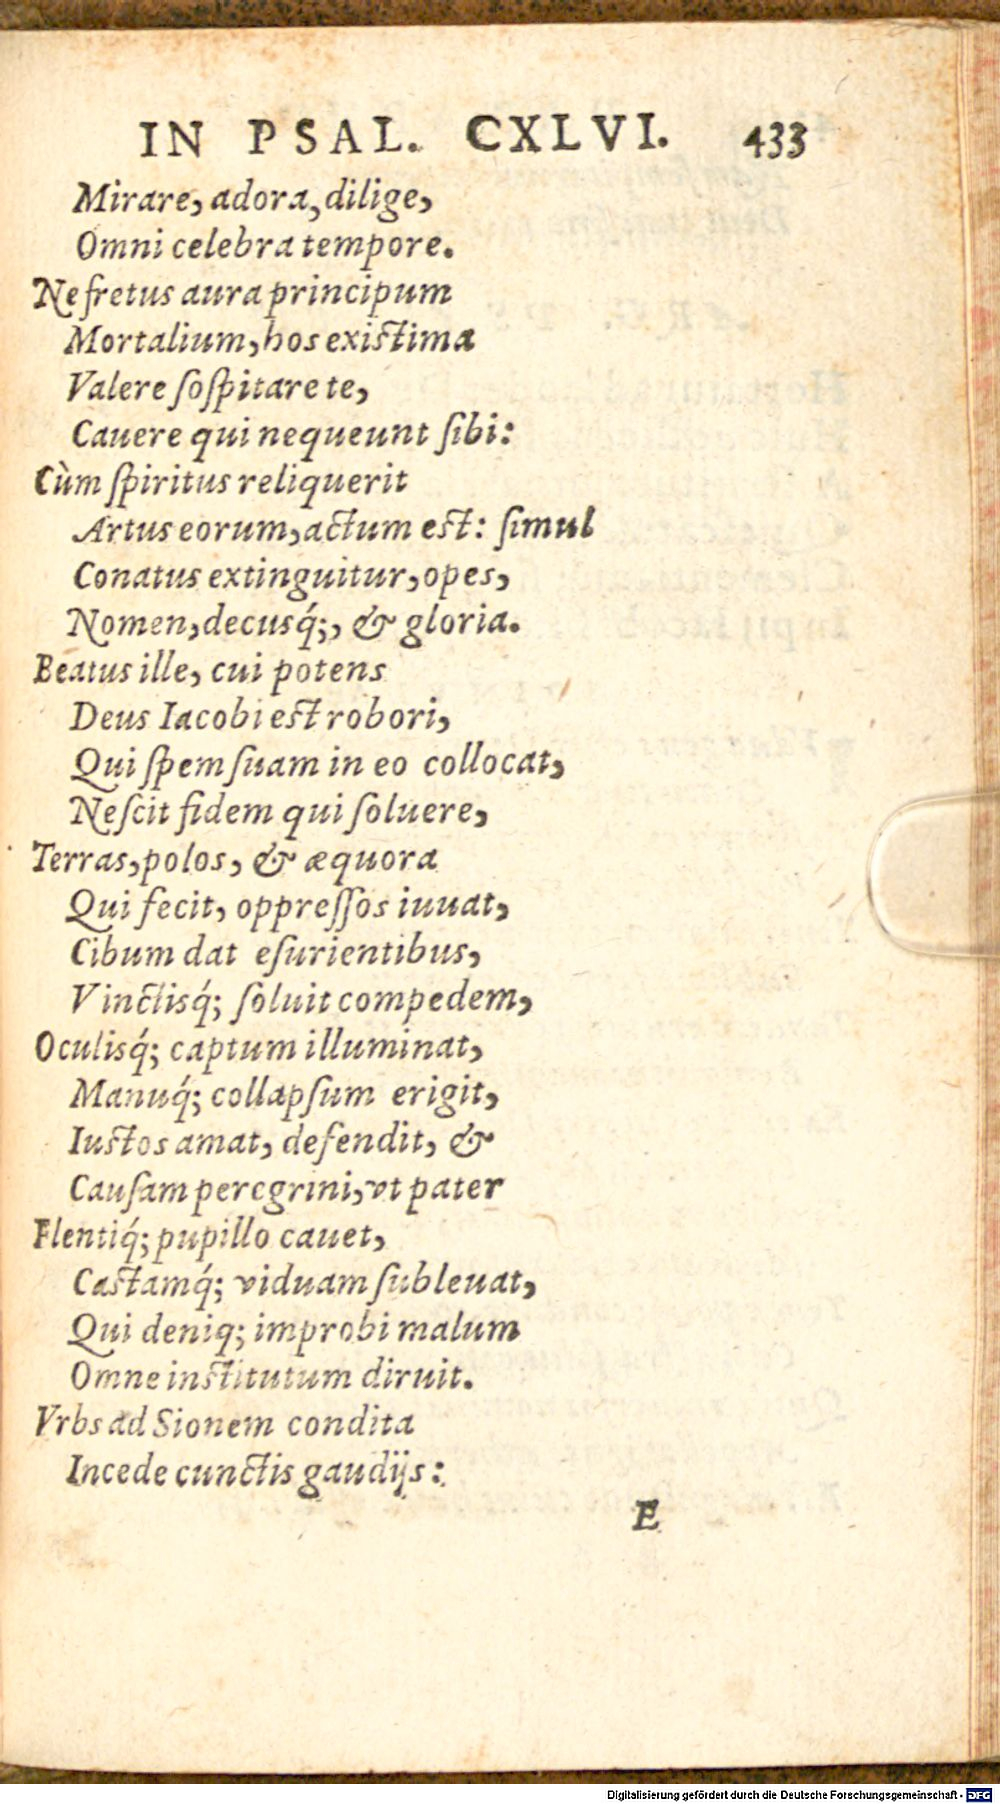 IN PSAL. CXLVI. 433
Mirare, adora, dilige,
Omni celebra tempore.
Ne fretus aura principum
Mortalium, hos existima
Valere soſpitare te,
Cauere qui nequeunt ſibi:
Cùm ſpiritus reliquerit
Artus eorum, actum est: ſimul
Conatus extinguitur, opes,
Nomen, decusq́;, & gloria.
Beatus ille, cui potens
Deus Iacobi est robori,
Qui ſpem ſuam in eo collocat,
Neſcit fidem qui ſoluere,
Terras, polos, & æquora
Qui fecit, oppreſſos iuuat,
Cibum dat eſurientibus,
Vinctisq́; ſoluit compedem,
Oculisq́; captum illuminat,
Manuq́; collapſum erigit,
Iustos amat, defendit, &
Cauſam peregrini, vt pater
Flentiq́; pupillo cauet,
Castamq́; viduam ſubleuat,
Qui deniq; improbi malum
Omne institutum diruit.
Vrbs ad Sionem condita
Incede cunctis gaudijs:
E
Digitalisierung gefördert durch die Deutsche Forschungsgemeinschaft - DFG